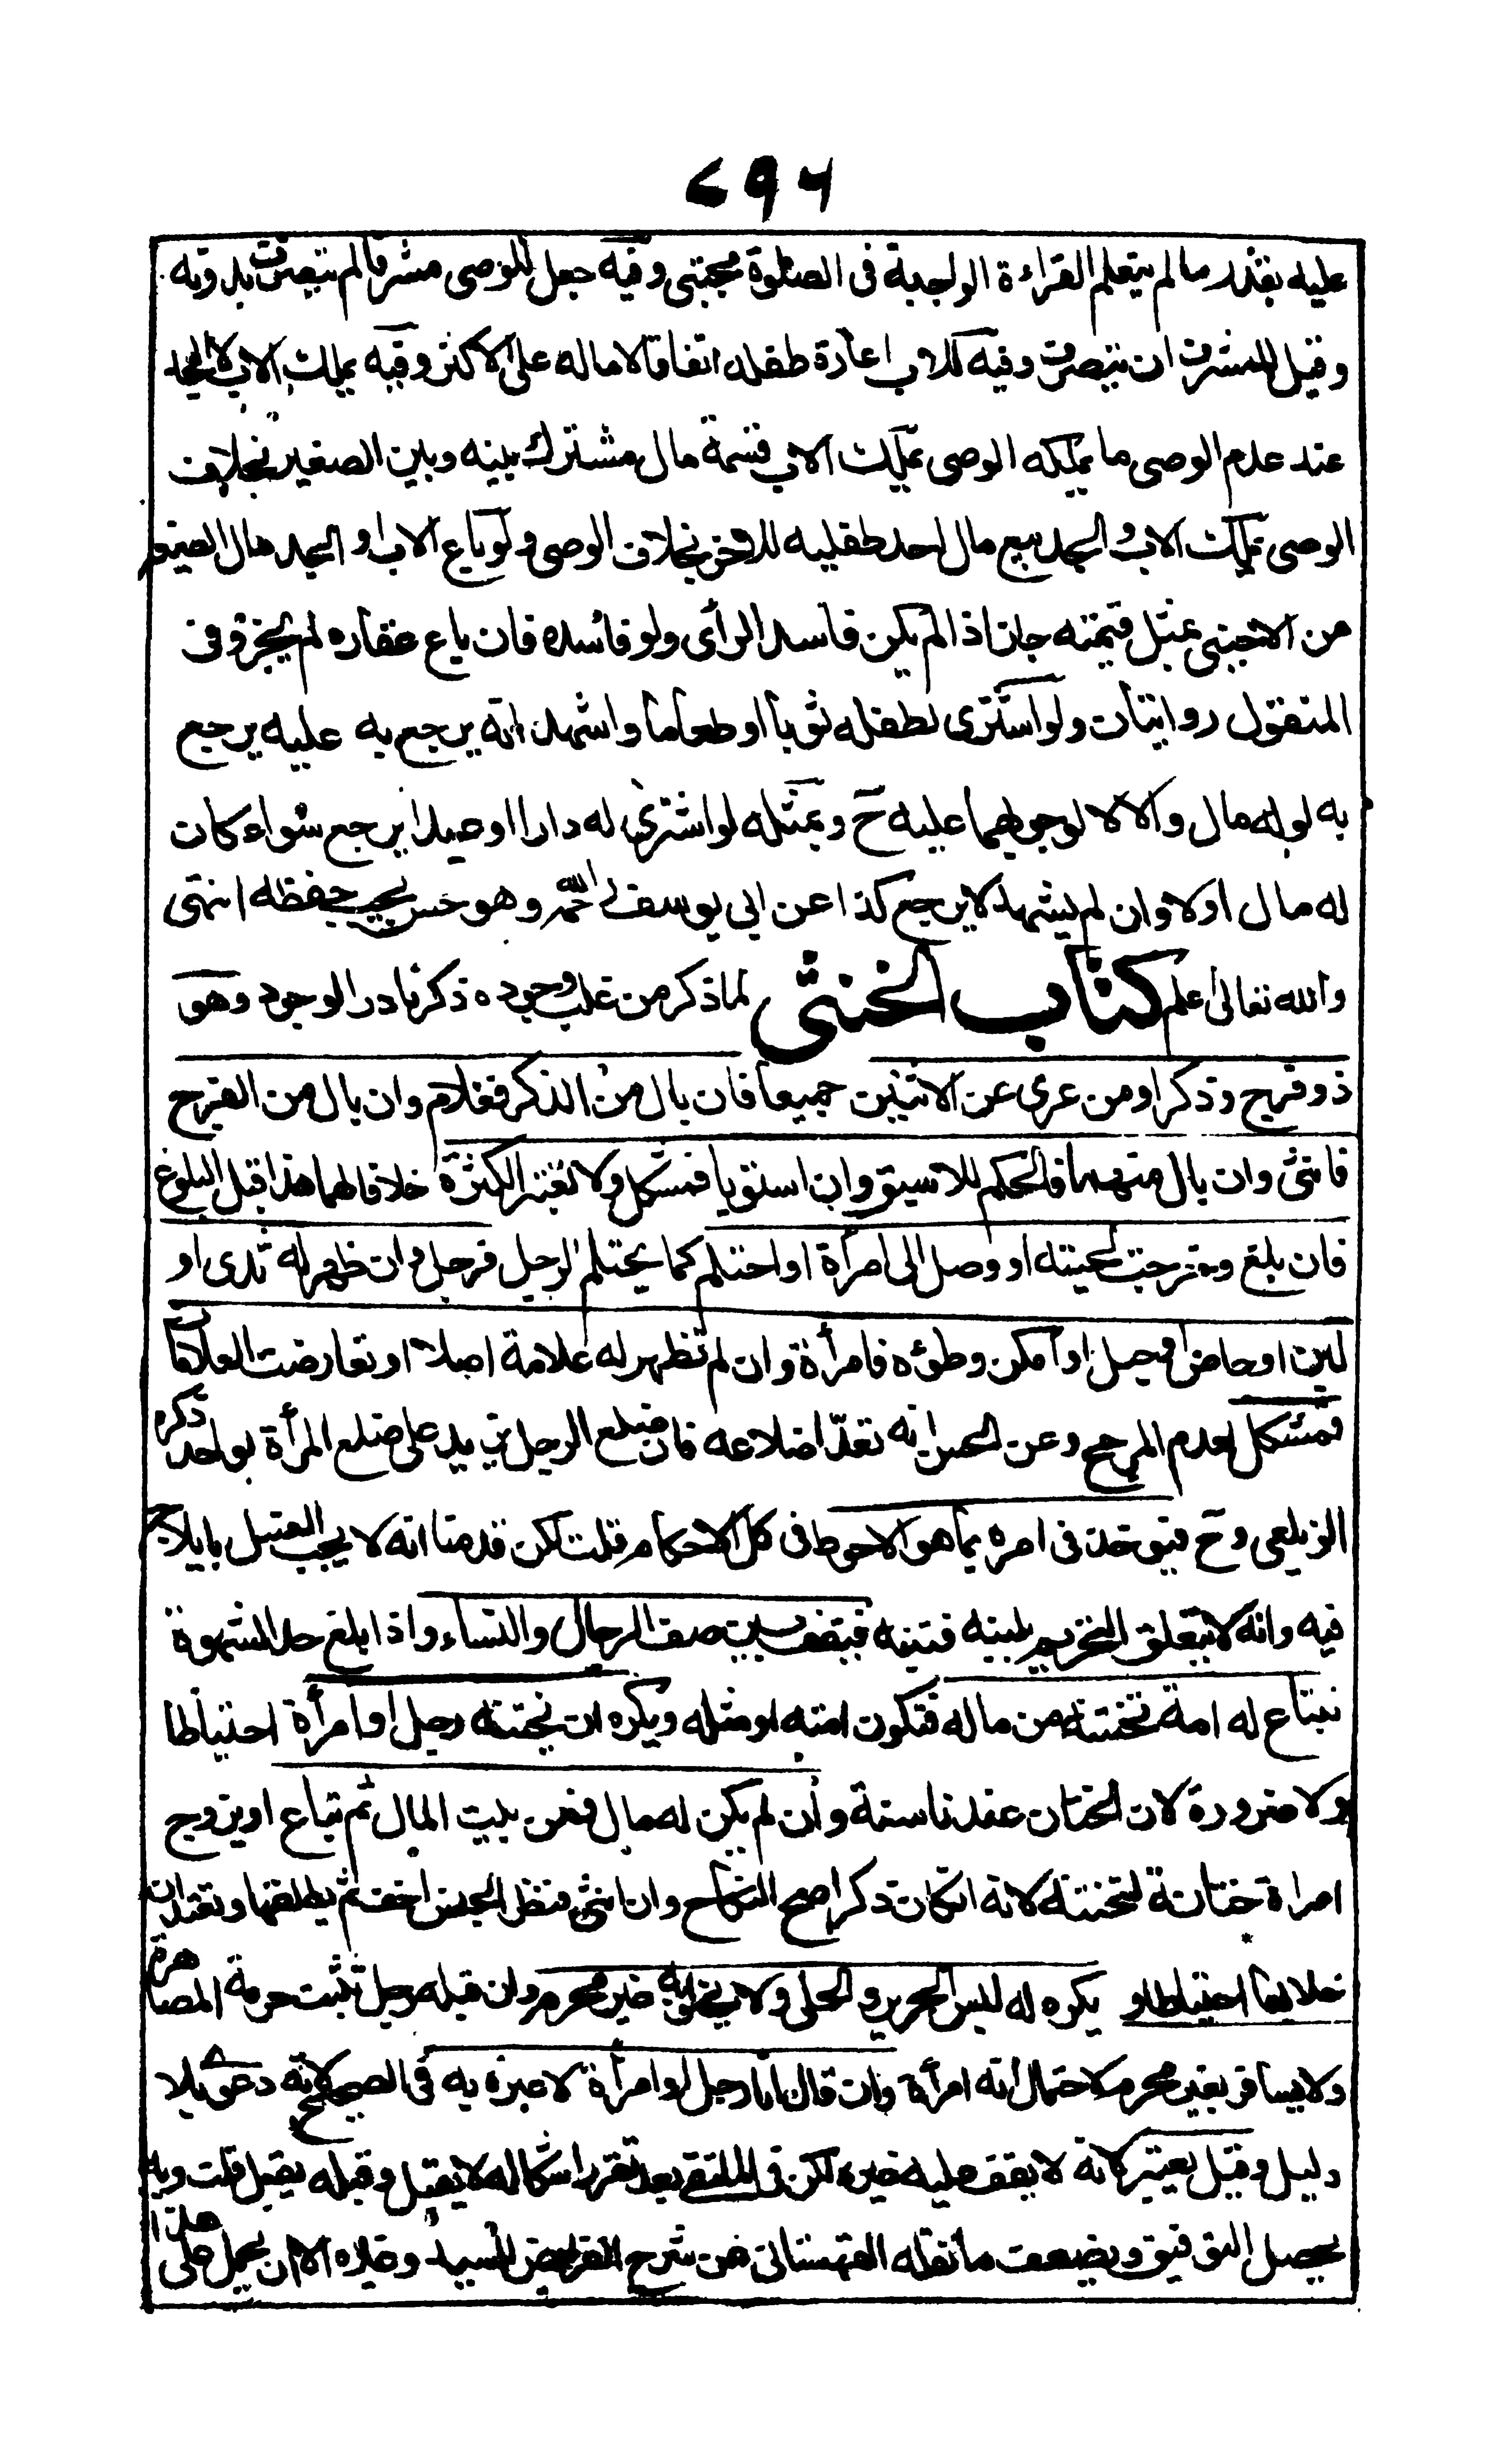 ٧٩٦
عليه بقدر ما لم يتعلم القراءة الواجبة فى الصلوة مجتبى وفيه جعل للوصى مشرفا لم يتصرف بدونه
وقيل للمشرف ان يتصرف وفيه للاب اعارة طفله اتفاقا لا ماله على الاكثر وفيه يملك الاب لا الجد
عند عدم الوصى ما يملكه الوصى يملك الاب قسمة مال مشترك بينه وبين الصغير بخلاف
الوصى يملك الاب والجد بيع مال احد طفليه للاخر بخلاف الوصى ولو باع الاب او الجد مال الصغير
من الاجنبى بمثل قيمته جاز اذا لم يكن فاسد الرأى ولو فاسده فان باع عقاره لم يجز وفى
المنقول روايتان ولو اشترى لطفله ثوبا او طعاما واشهد انه يرجع به عليه يرجع
به لو له مال والا لا لوجوبهما عليه ح وبمثله لو اشترى له دارا او عبدا يرجع سواء كان
له مال اولا وان لم يشهد لا يرجع كذا عن ابى يوسف رحمه الله وهو حسن يجب حفظه انتهى
والله تعالى اعلم كتاب الخنثى لما ذكر من غلب وجوده ذكر نادر الوجود وهو
ذو فرج وذكر او من عرى عن الاثنين جميعا فان بال من الذكر فغلام وان بال من الفرج
فانثى وان بال منهما فالحكم للاسبق وان استويا فمشكل ولا تعتبر الكثرة خلافا لهما هذا قبل البلوغ
فان بلغ وخرجت لحيته او وصل الى امرأة او احتلم كما يحتلم الرجل فرجل وان ظهر له ثدى او
لبن او حاض او حبل او امكن وطؤه فامرأة وان لم تظهر له علامة اصلا او تعارضت العلامات
فمشكل لعدم المرجح وعن الحسن انه تعد اضلاعه فان ضلع الرجل يزيد على ضلع المرأة بواحد ذكره
الزيلعى وح فيؤخذ فى امره بما هو الاحوط فى كل الاحكام قلت لكن قدمنا انه لا يجب الغسل بايلاج
فيه وانه لا يتعلق التحريم بلبنه فتنبه فيقف بين صف الرجال والنساء واذا بلغ حد الشهوة
تبتاع له امة تختنه من ماله فتكون امته او مثله ويكره ان يختنه رجل او امرأة احتياطا
ولا ضرورة لان الختان عندنا سنة وان لم يكن له مال فمن بيت المال ثم تباع او يزوج
امراة ختانة لتختنه لانه ان كان ذكرا صح النكاح وان انثى فنظر الجنس اخف ثم يطلقها وتعتد ان
خلا بها احتياطا و يكره له لبس الحرير والحلى ولا يخلو به غير محرم وان قبله رجل تثبت حرمة المصاهرة
ولا يسافر بغير محرم لاحتمال انه امرأة وان قال انا رجل او امرأة لا عبرة به فى الصحيح لانه دعوى بلا
دليل وقيل يعتبر لانه لا يقف عليه غيره لكن فى الملتقى بعد تقرر اشكاله لا يقبل وقبله يقبل قلت وبه
يحصل التوفيق ويضعف ما نقله القهستانى عن شرح الفرائض للسيد وغيره الا ان يحمل على هذا